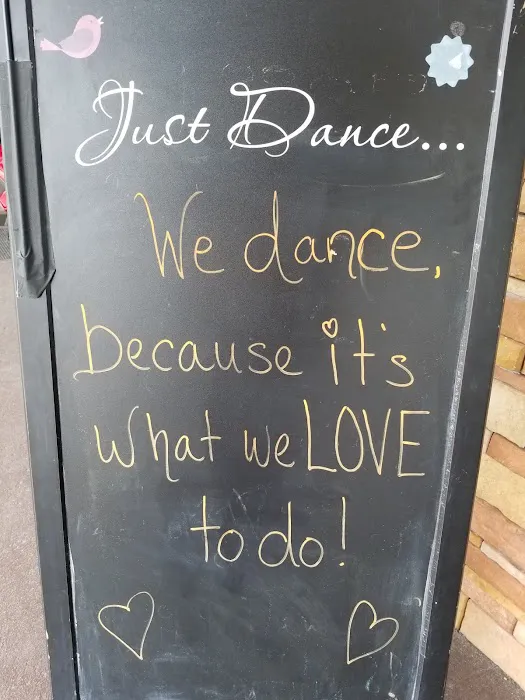 Just Dance...
We dance,
because it's
what we LOVE
to do!